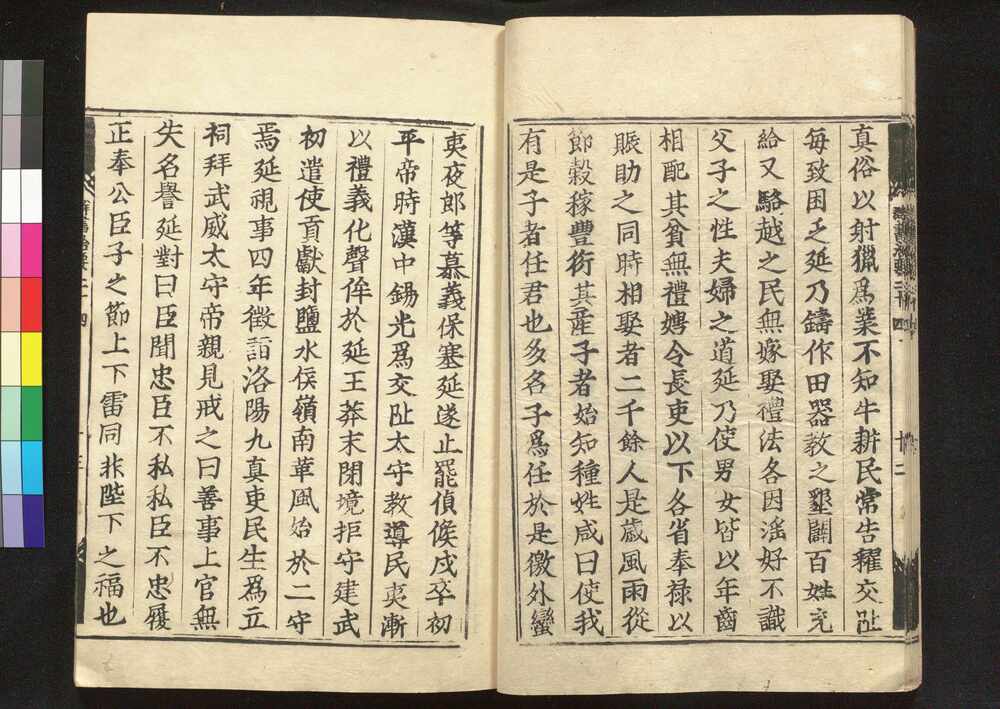 真俗以射獵爲業不知牛耕民常告糴交阯
每致困乏延乃鑄作田器教之墾闢百姓充
給又駱越之民無嫁娶禮法各因淫好不識
父子之性夫婦之道延乃使男女皆以年齒
相配其貧無禮娉令長吏以下各省奉祿以
賑助之同時相娶者二千餘人是歲風雨從
節穀稼豐衍其產子者始知種姓咸曰使我
有是子者任君也多名子爲任於是徼外蠻
夷夜郎等慕義保塞延遂止罷偵候戍卒初
平帝時漢中錫光爲交阯太守教導民夷漸
以禮義化聲侔於延王莽末閉境拒守建武
初遣使貢獻封鹽水侯嶺南華風始於二守
焉延視事四年徵詣洛陽九真吏民生爲立
祠拜武威太守帝親見戒之曰善事上官無
失名譽延對曰臣聞忠臣不私私臣不忠履
正奉公臣子之節上下雷同非陛下之福也